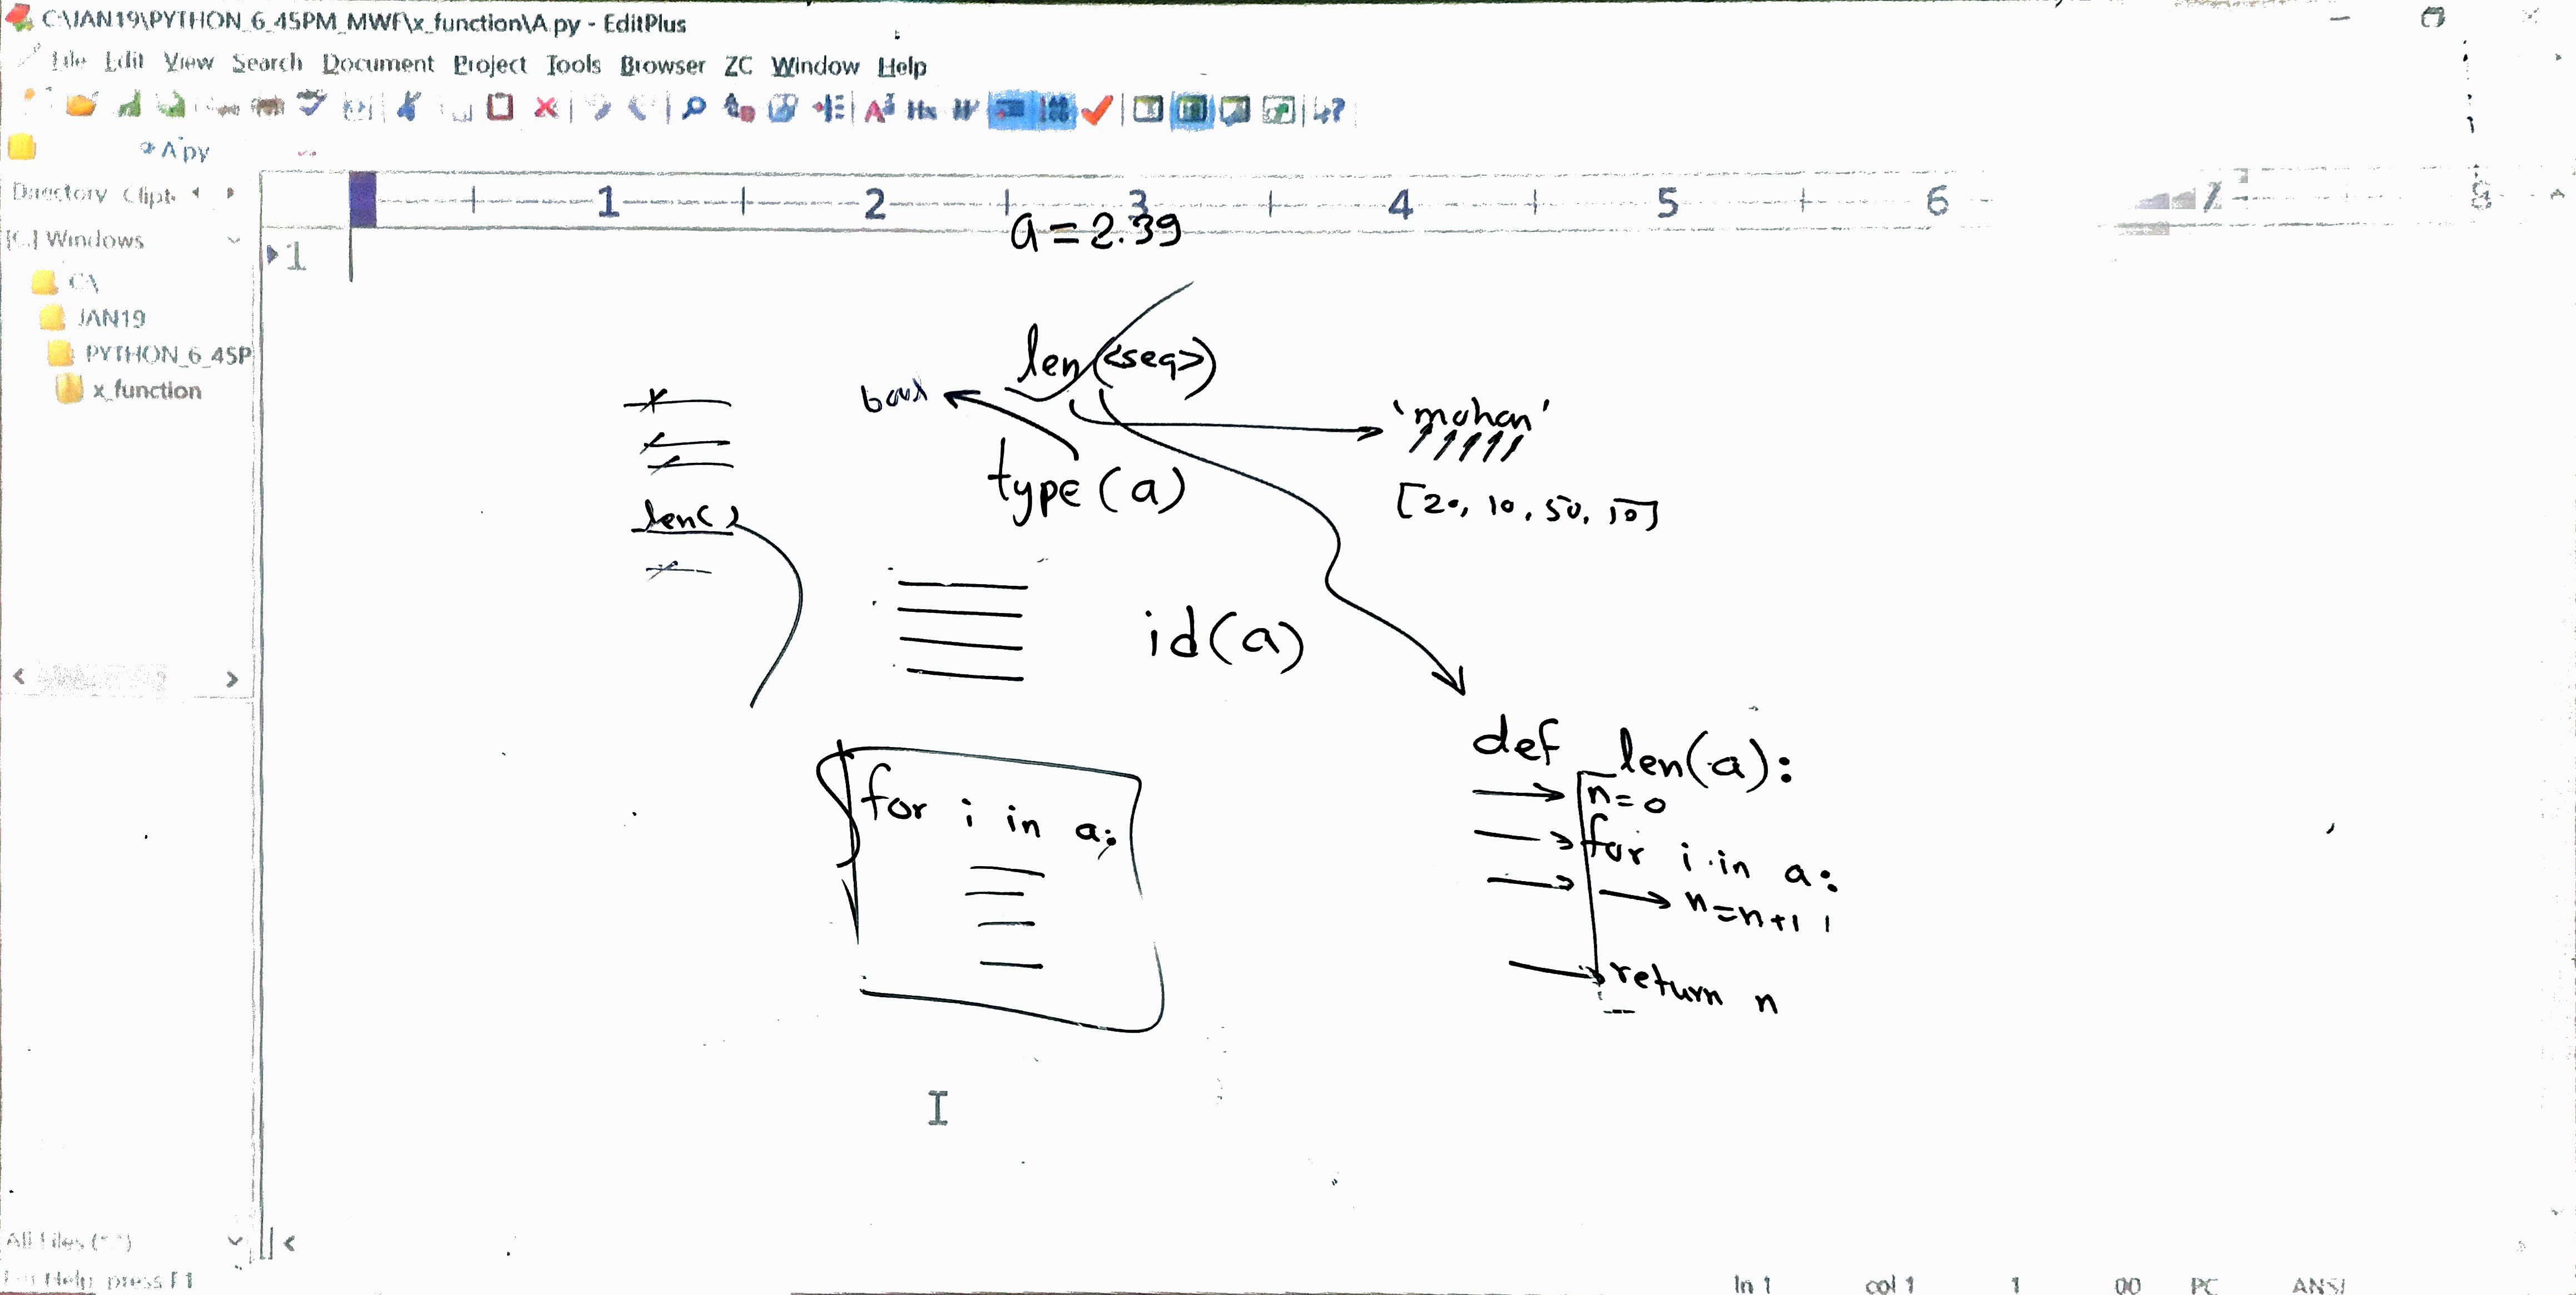 C:\JAN19\PYTHON_6_45PM_MWF\x_function\A.py - EditPlus
File Edit View Search Document Project Tools Browser ZC Window Help
A.py
Directory Clipt
[C:] Windows
C:\
JAN19
PYTHON_6_45P
x_function
1 2 3 4 5 6 7 8
1
a = 2.39
len(<seq>)
'mohan'
type(a)
[20, 10, 50, 10]
len( )
id(a)
def len(a):
n=0
for i in a:
n=n+1
return n
for i in a:
All Files (*.*)
For Help, press F1
ln 1 col 1 1 00 PC ANSI